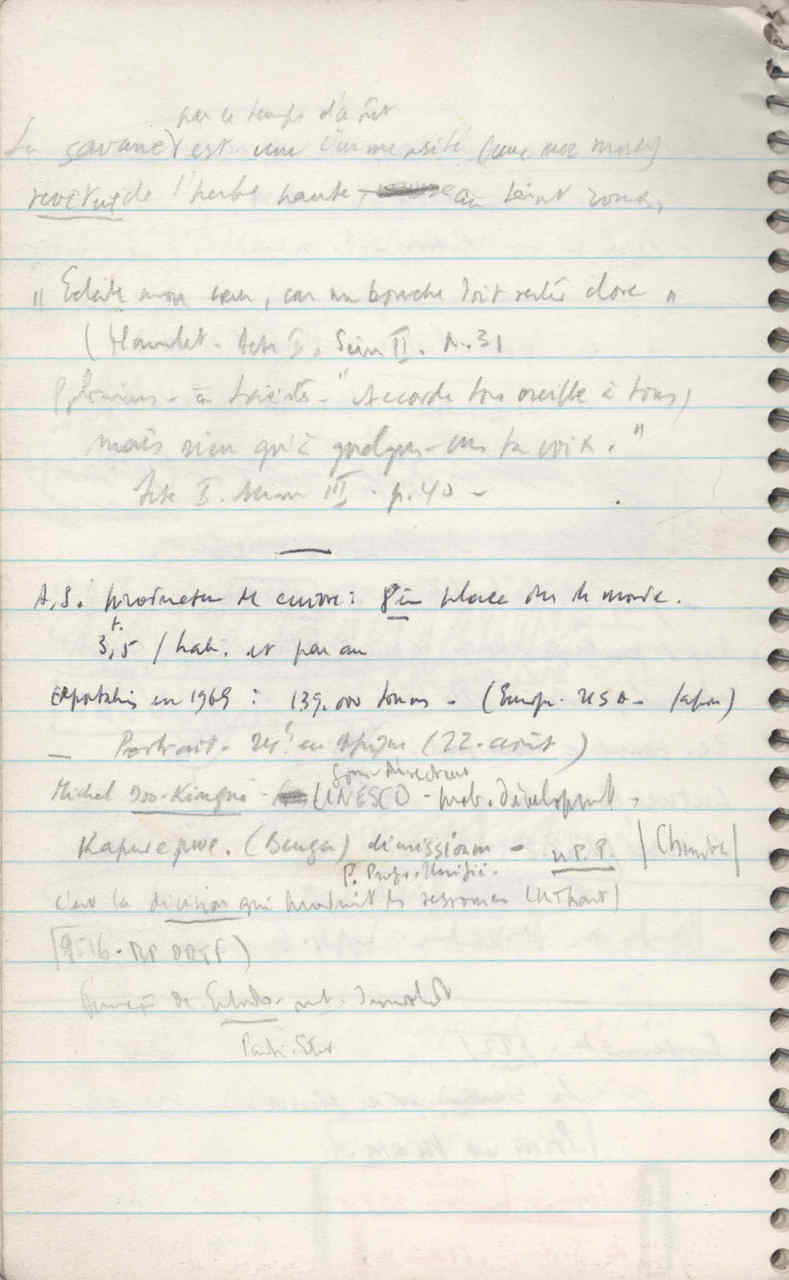 par ce temps d'août
La savane est une immensité (une mer morte)
revêtue de l'herbe haute, au teint roux,
"Eclate mon cœur, car ma bouche doit rester close"
(Hamlet - Acte I, Scène II. p. 31
Polonius - à Laërtes - "Accorde ton oreille à tous,
mais rien qu'à quelques-uns ta voix."
Acte I. Scène III. p. 40 -
A.S. producteur de cuivre: 8e place dans le monde.
3,5 t. / hab. et par an
exportation en 1969 : 139.000 tonnes - (Europe. USA - Japon)
- Portrait - en Afrique (22 août)
sous-directeur
Michel Doo-Kingué - UNESCO - prob. développmt,
Kapwepwe. (Bemba) démissionne - U.P.P. /
P. Progr. Unifié.
c'est la division qui produit les ressources (UThant)
(9516. BP ORTF)
de